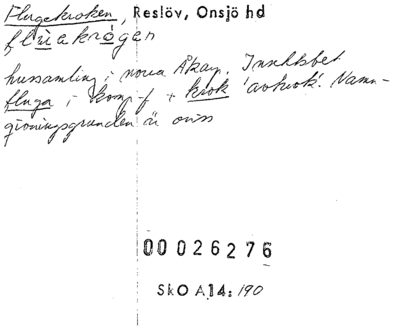 Flugekroken, Reslöv, Onsjö hd
flùakrógen
hussamling i norra Åkarp. Innehåller
fluga i komp-f + krok 'avkrok'. Namn-
givningsgrunden är oviss
00026276
Sko A14: 190